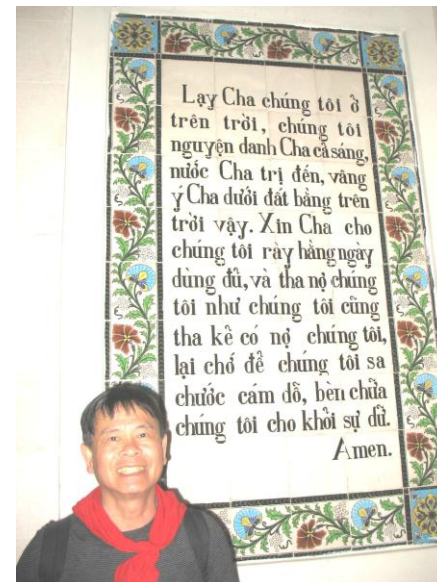 Lạy Cha chúng tôi ở
trên trời, chúng tôi
nguyện danh Cha cả sáng,
nước Cha trị đến, vâng
ý Cha dưới đất bằng trên
trời vậy. Xin Cha cho
chúng tôi rày hằng ngày
dùng đủ, và tha nợ chúng
tôi như chúng tôi cũng
tha kẻ có nợ chúng tôi,
lại chớ để chúng tôi sa
chước cám dỗ, bèn chữa
chúng tôi cho khỏi sự dữ.
Amen.